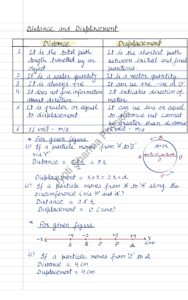 Distance and Displacement
Distance
Displacement
1 It is the total path length travelled by an object
It is the shortest path between initial and final positions.
2 It is a scalar quantity
It is a vector quantity.
3 It is always +ve
It can be +ve, -ve or 0
4 It does not give information about direction.
It indicates direction of motion.
5 It is greater or equal to displacement
It can be less or equal to distance but cannot be greater than distance
6 SI unit - m
SI unit - m
* For given figure
i) If a particle moves from 'A' to 'B' via 'P'
Distance =
Displacement = R + R = 2R
ii) If a particle moves from 'A' to 'A' along the circumference (via 'P' and
Distance = 2πR
Displacement = 0 (zero)
* For given figure
i) If a particle moves from 'O' to
Distance = 4 cm
Displacement = 4 cm